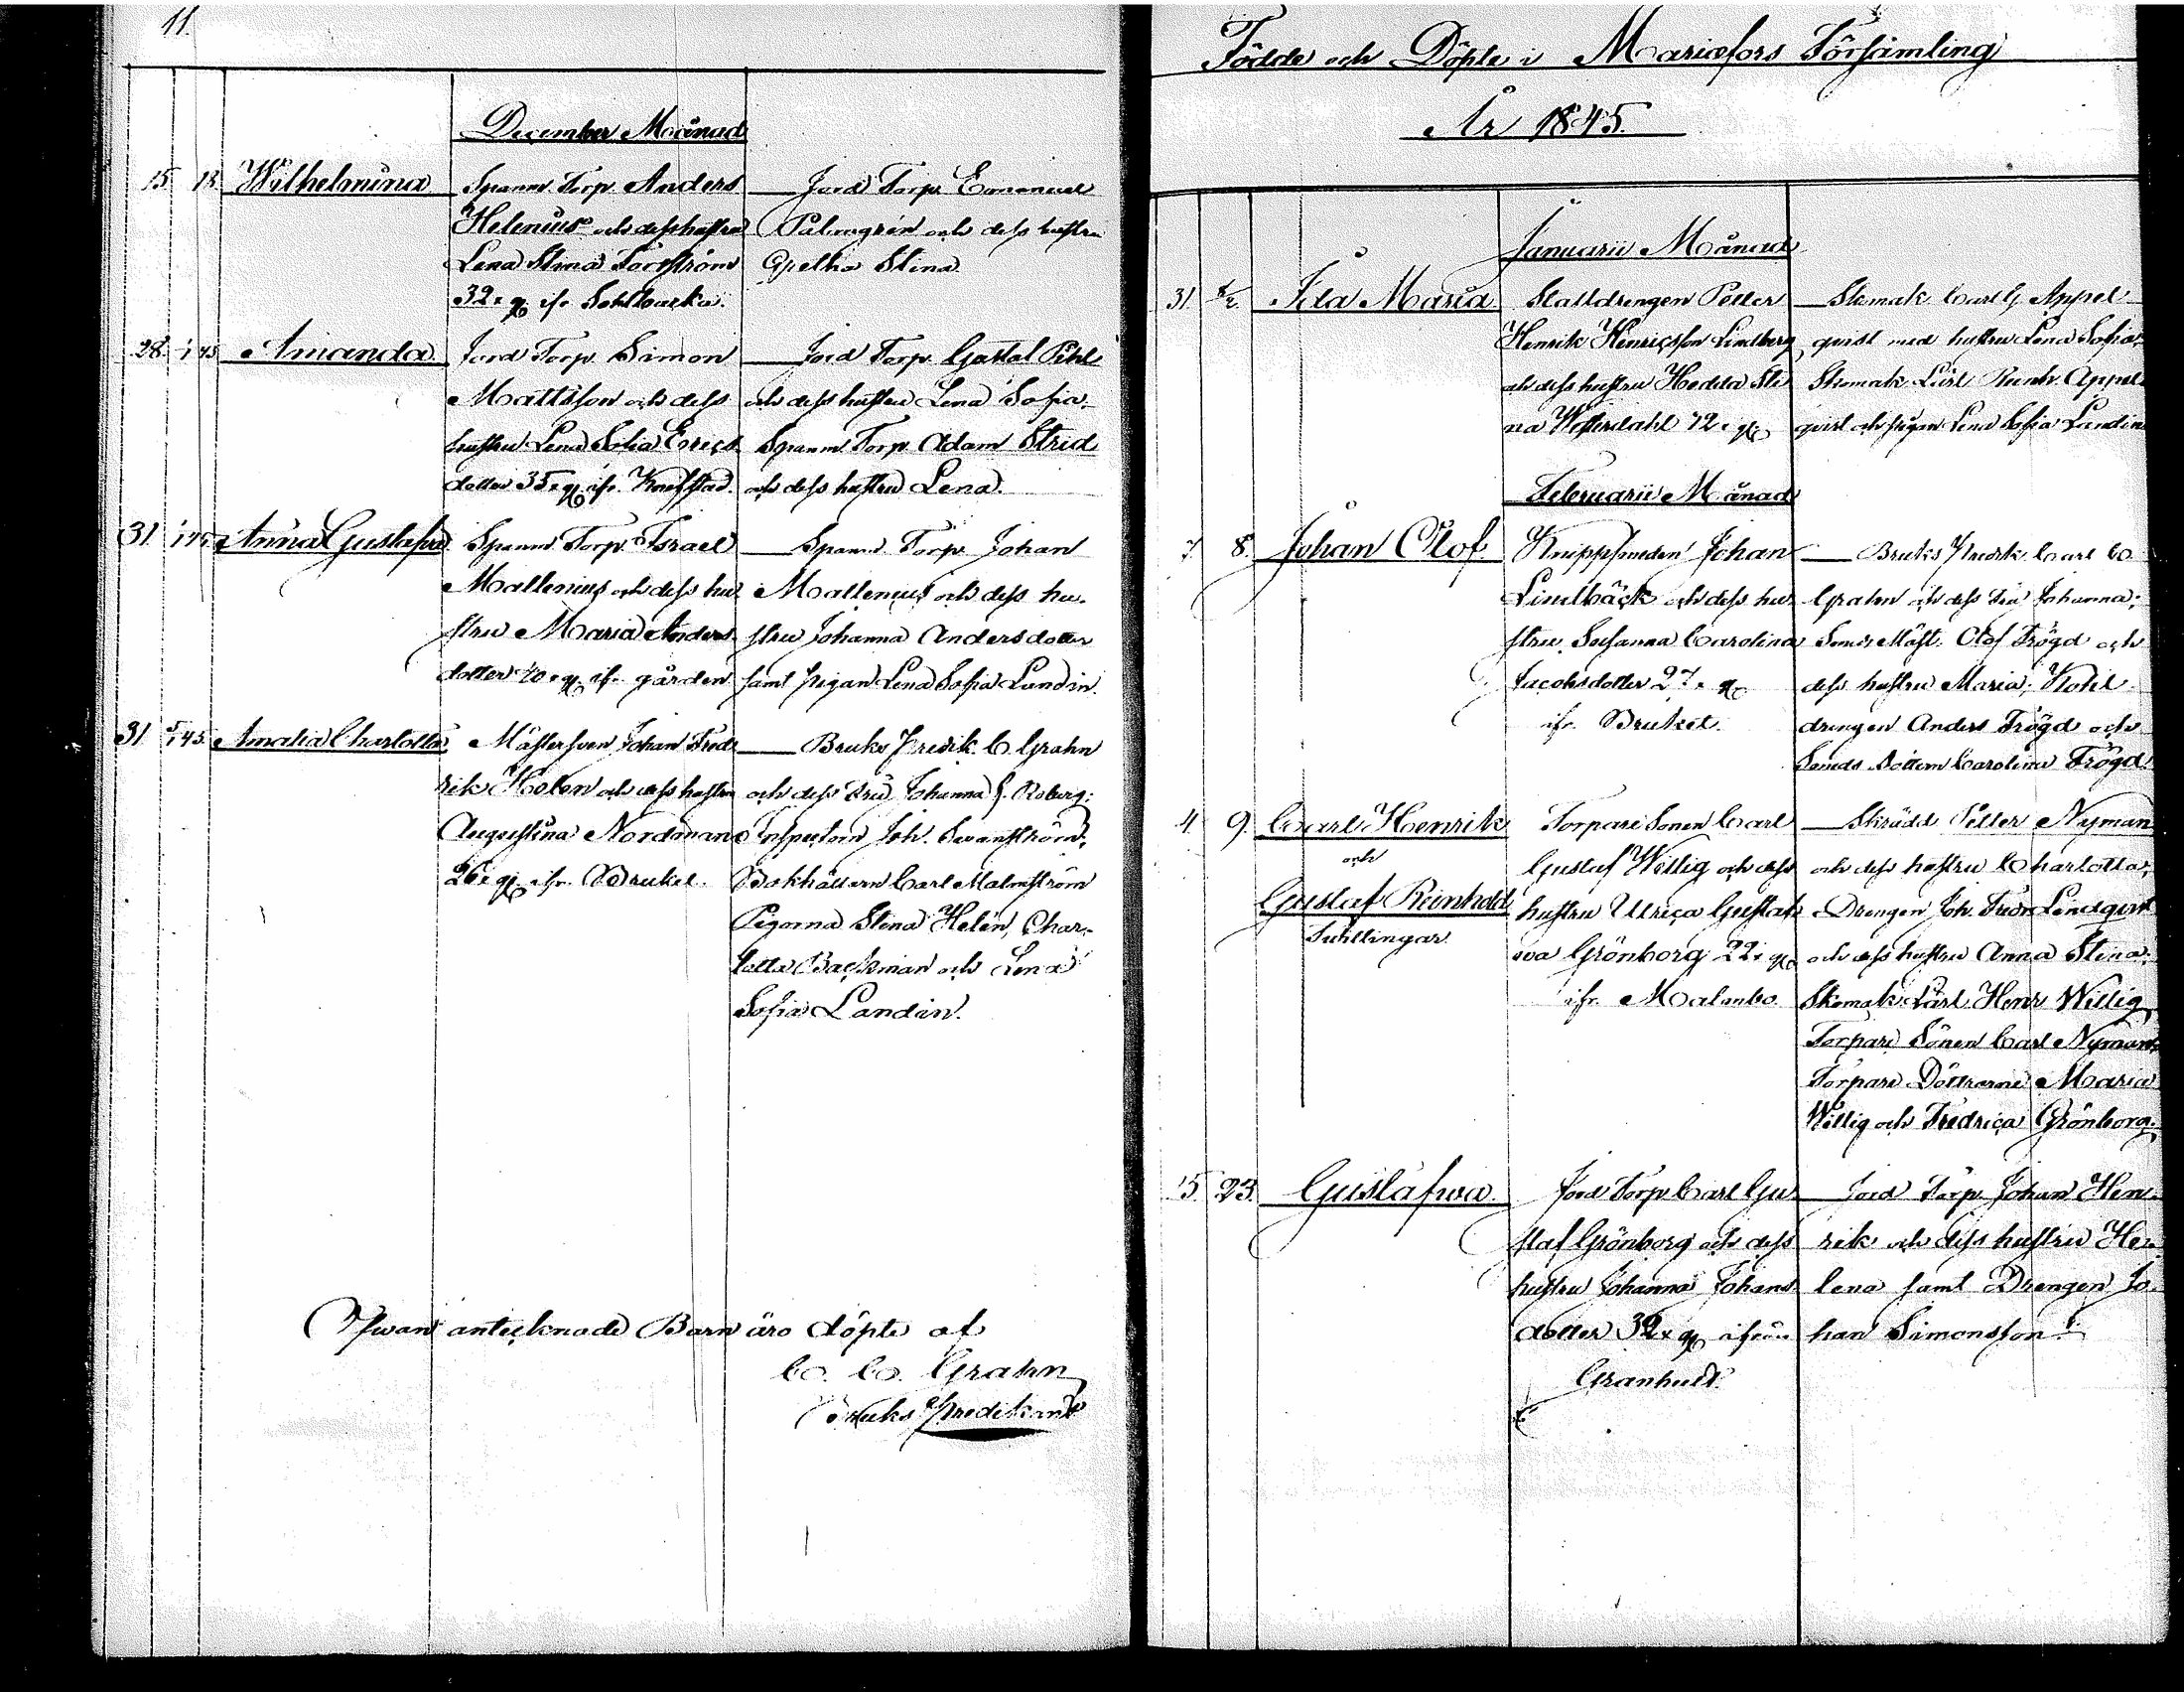 11.
December Månad
15. 18. Wilhelmina Spanm. Torp. Anders
Helenius och dess hustru
Lena Stina Forsström
32. ifr. Sohlbacka.
Jord Torp. Emanuel
Palmgrén och dess hustru
Greltha Stina
28. Amanda Jord Torp. Simon
Mattsson och dess
hustru Lena Sofia Ericks
dotter 35. ifr.
Jord Torp. Gustaf Pihl
och dess hustru Lena Sofia.
Spanm Torp Adam Strid
och dess hustru Lena.
31 Anna Gustafva Spanm Torp. Israel
Mallenius och dess hu
stru Maria Anders
dotter 40. ifr. gården
Spanm. Torp. Johan
Mallenius och dess hu-
stru Johanna Andersdotter
samt pigan Lena Sofia Lundin.
31 Amalia Charlotta Mästersven Johan Fred
rik Holen och dess hustru
Augustina Nordman
26. ifr. Bruket.
Bruks Predik. C. Grahn
och dess Fru Johanna f. Roberg;
Inspectorn Joh. Svanström;
Bokhållarn Carl Malmström
Pigorna Stina Helén, Char-
lotta Backman och Lena
Sofia Landin.
Ofvan antecknade Barn äro döpte af
C. C. Grahn
Bruks Predikant
Födde och Döpte i Mariæfors Församling
År 1845.
Januarii Månad
31. 8/2 Ida Maria Stalldrengen Petter
Henrik Henricsson Lindberg
och dess hustru Hedda Sti
na Westerdahl
Skomak. Carl G. Appel
qvist med hustru Lena Sofia;
Skomak. Lärl. Appel
qvist och pigan Lena Sofia Lundin
Februarii Månad
7. 8. Johan Olof. Knippsmeden Johan
Lindbäck och dess hu
stru Susanna Carolina
Jacobsdotter 27.
ifr. Bruket.
Bruks Predik. Carl C.
Grahn och dess Fru Johanna;
Smids Mäst. Olof Frögd och
dess hustru Maria; Kohl
drengen Anders Frögd och
Smeds Dottern Carolina Frögd.
4. 9. Carl Henrik
och
Gustaf Reinhold
Tvillingar
Torpare Sonen Carl
Gustaf Willig och dess
hustru Ulrica Gustaf
va Grönborg 22.
ifr. Malmbo.
Skrädd Petter Nyman
och dess hustru Charlotta;
Drengen Joh. Lindqvist
och dess hustru Anna Stina;
Skomak. Lärl. Henr Willig
Torpare Sönen Carl Nyman,
Torpare Döttrarne Maria
Willig och Fredrica Grönborg.
15. 23. Gustafva. Jord Torp. Carl Gu
staf Grönborg och dess
hustru Johanna Johans
dotter 32. ifrån
Granhult.
Jord Torp. Johan Hen-
rik och dess hustru He-
lena samt Drengen Jo-
han Simonsson.